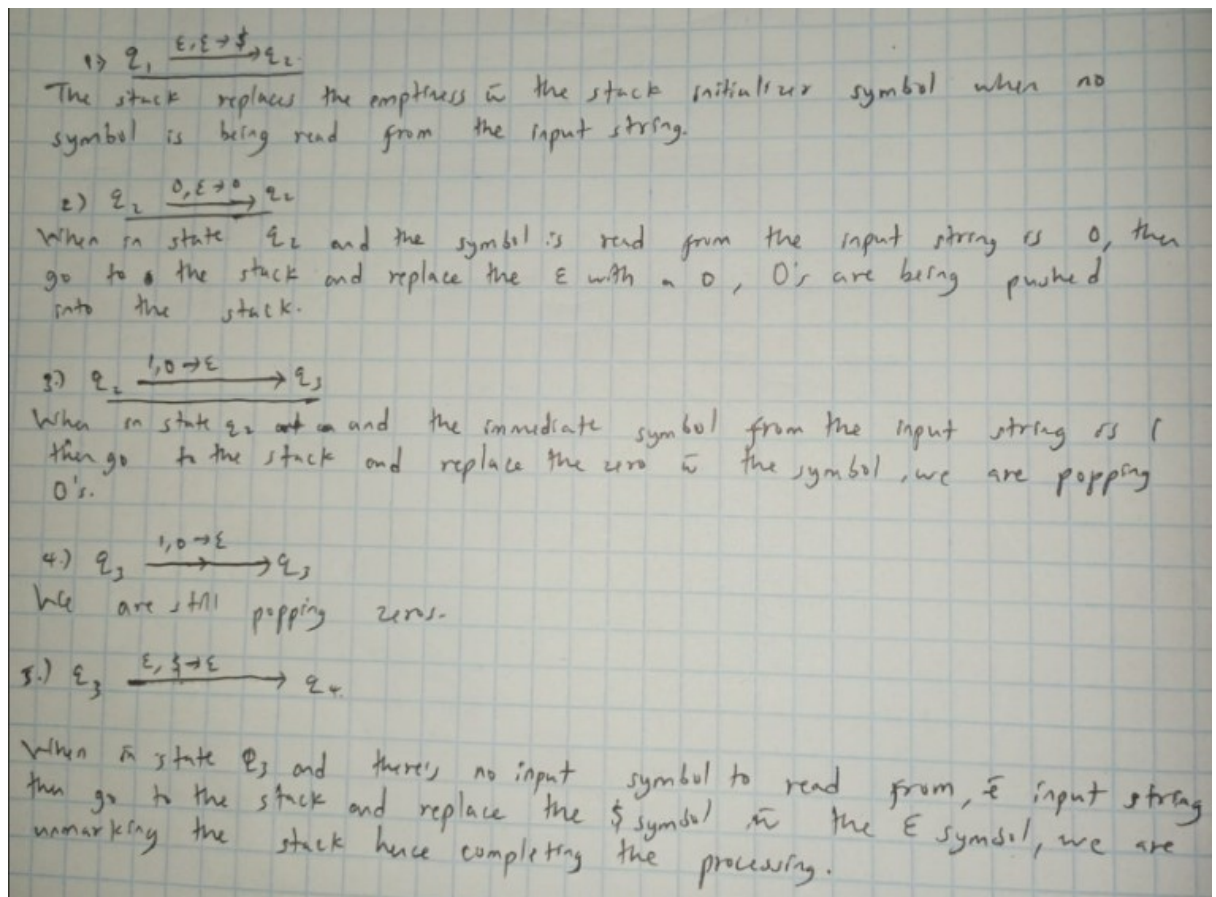 1) q₁ ε,ε→$ q₂
The stack replaces the emptiness w̄ the stack initializer symbol when no
symbol is being read from the input string.
2) q₂ 0,ε→0 q₂
When in state q₂ and the symbol is read from the input string is 0, then
go to the stack and replace the ε with a 0, 0's are being pushed
into the stack.
3.) q₂ 1,0→ε q₃
When in state q₂ and the immediate symbol from the input string is 1
then go to the stack and replace the zero w̄ the symbol, we are popping
0's.
4.) q₃ 1,0→ε q₃
We are still popping zeros.
5.) q₃ ε,$→ε q₄.
When in state q₃ and there's no input symbol to read from, input string
then go to the stack and replace the $ symbol w̄ the ε symbol, we are
unmarking the stack hence completing the processing.